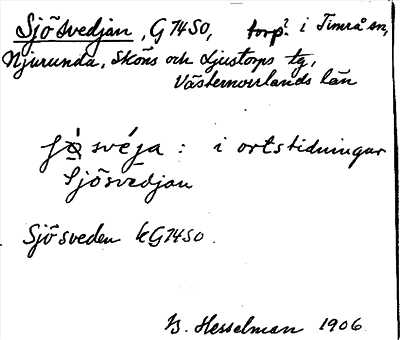 Sjösvedjan, G74SO, torp? i Timrå sn,
Njurunda, Sköns och Ljustorps tg,
Västernorrlands län
svéja: i ortstidningar
Sjösvedjan
Sjösveden kG74SO
B. Hesselman 1906